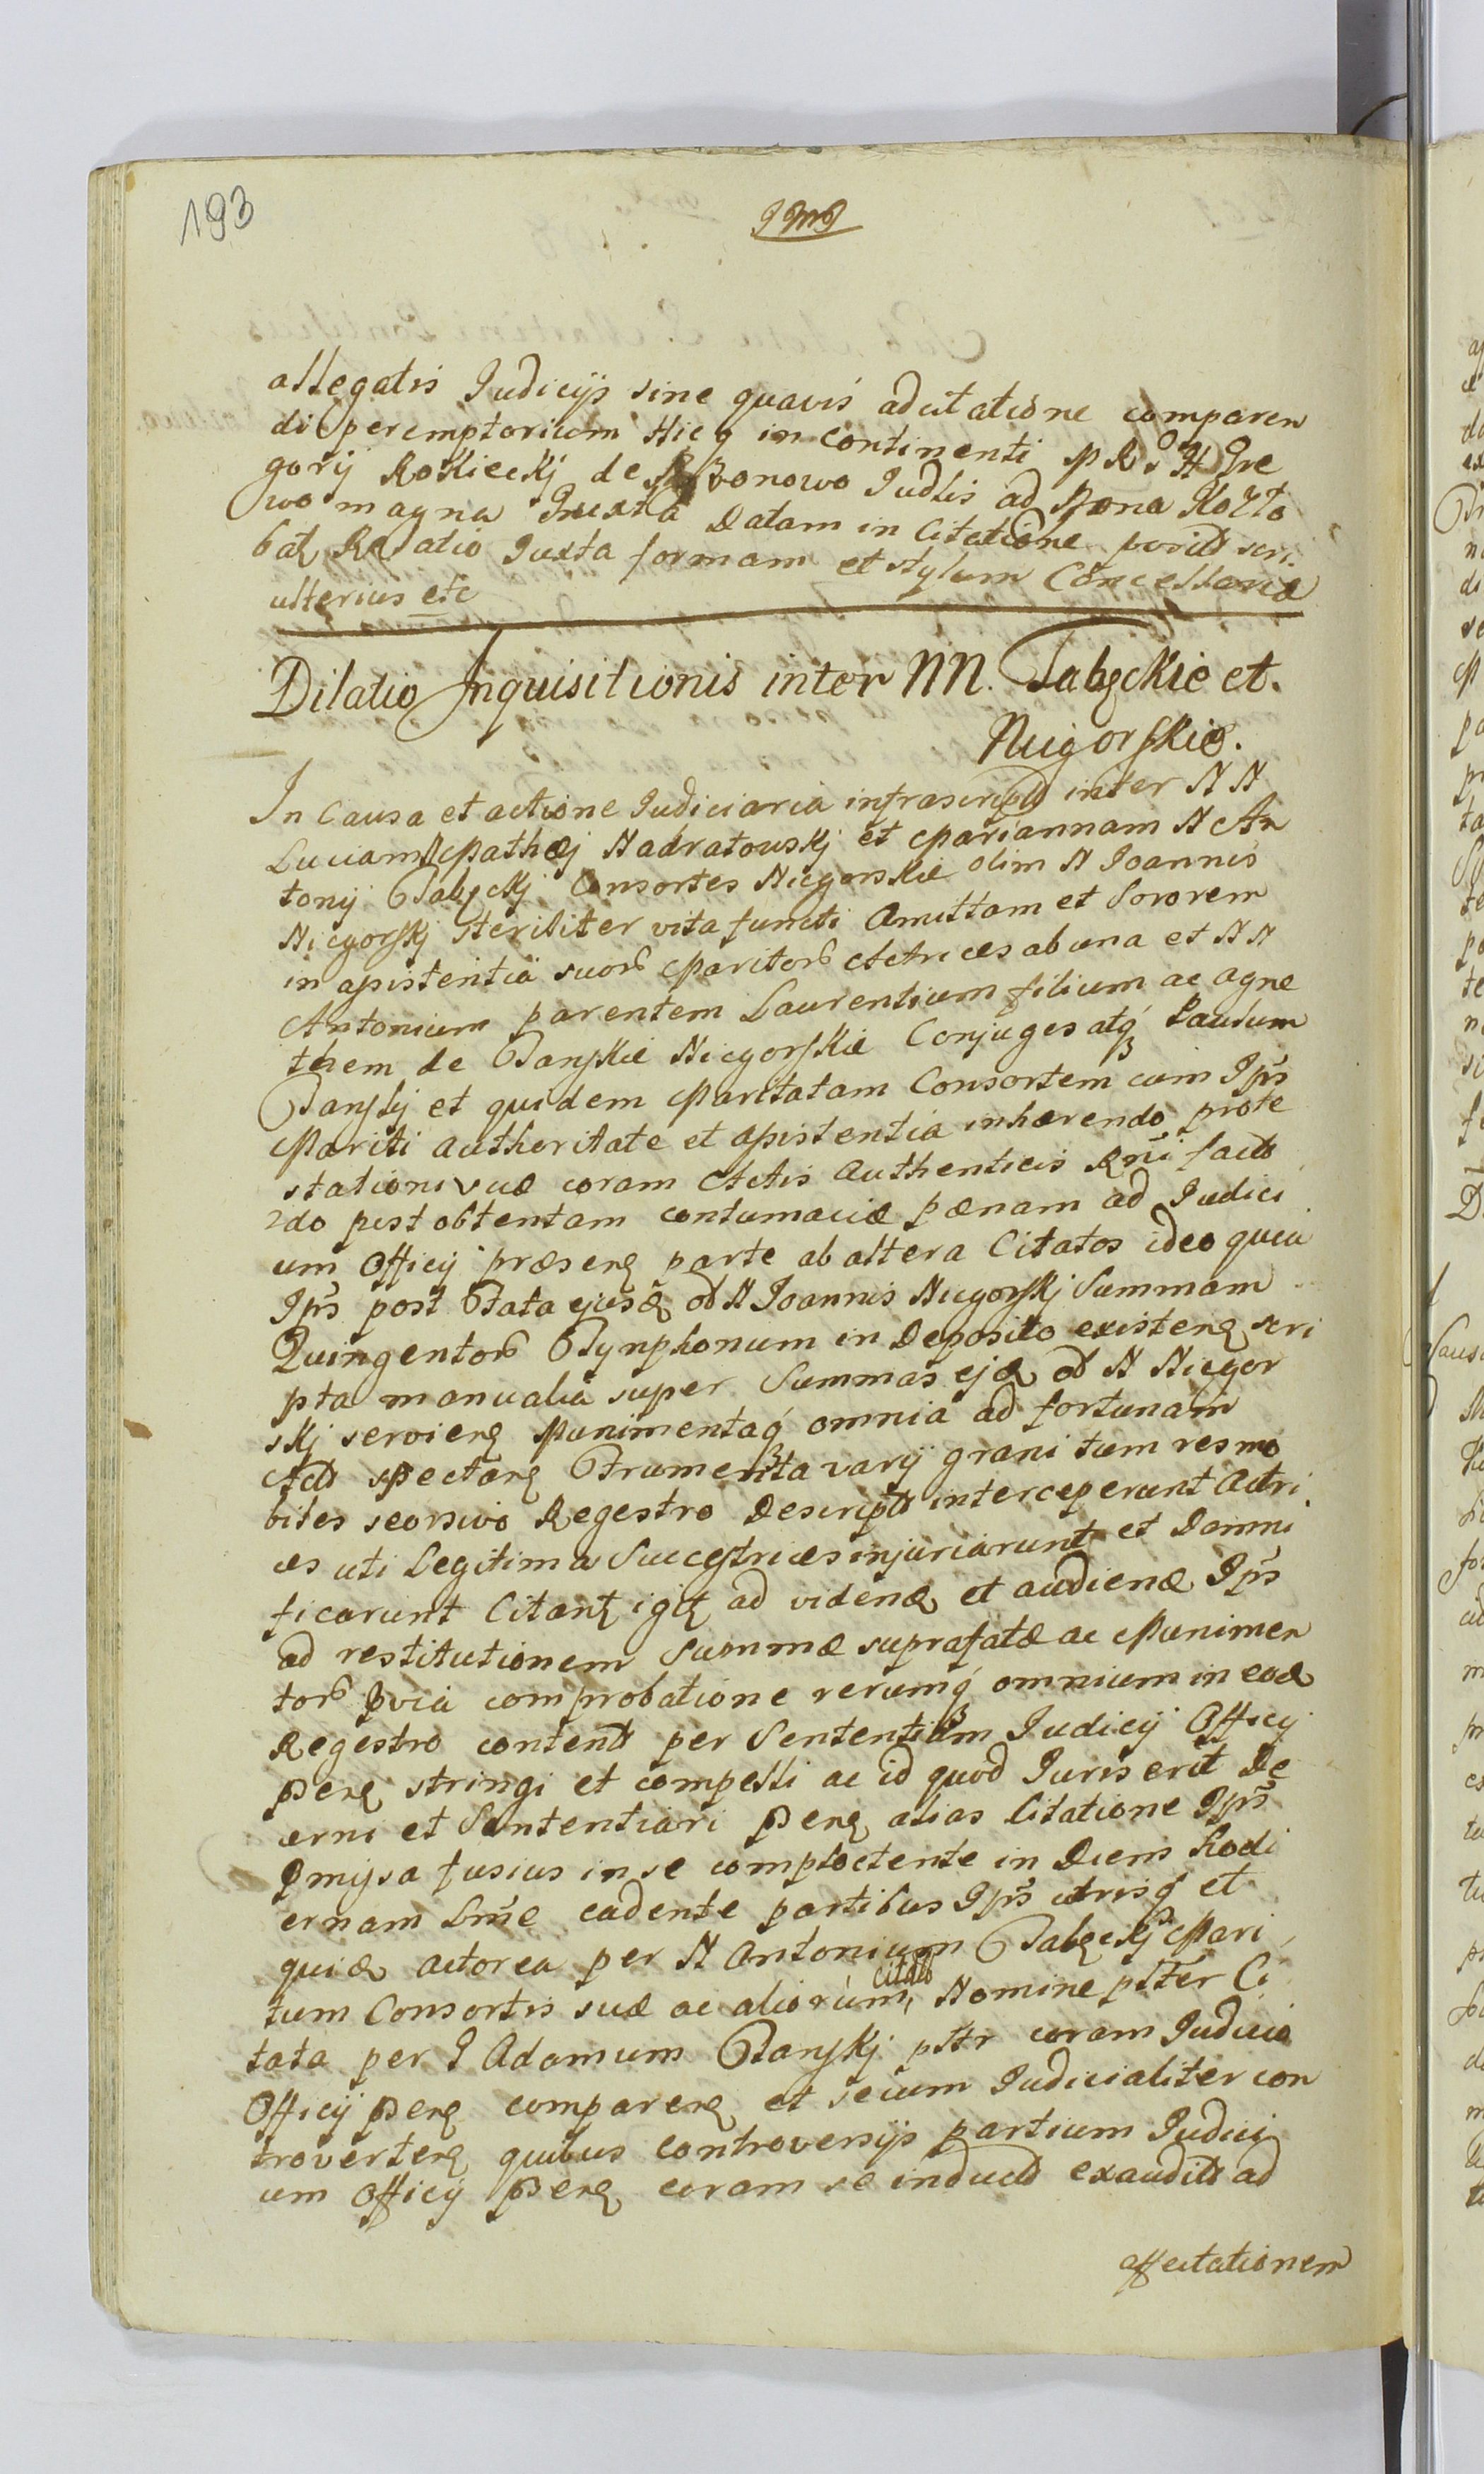 193
JMJ
allegatis Judicijs sine quavis adcitatione comparen
di peremptorium Hicq in continenti Gre
gorij Roskieckj de Judlis ad Bona Kozło
wo magna Juxta Datam in Citatione posit scri
bat Relatio Juxta formam et stylum Cancellariæ
ulterius etc
Dilatio Inquisitionis inter NN. Tabęckie et
Niegorskie.
In Causa et actione Judiciaria infrascript inter N N
Luciam Mathæj Nadratowskj et Mariannam N An
tonij Tabęckj Consortes Niegorskie olim N Joannis
Niegorskj steriliter vita functi Amittam et Sororem
in assistentia suor Maritor Actrices ab una et N N
Antonium parentem Laurentium filium ac Agne
them de Fanskie Niegorskie Conjuges atq Paulum
Fanskj et quidem Maritatam Consortem cum Ips
Mariti authoritate et assistentia inhærendo prote
stationi suæ coram Actis Authenticis Rni fact
2do post obtentam contumaciæ pænam ad Judici
um Officij præsens parte ab altera Citatos ideo quia
Ips post Fata ejusd od N Joannis Niegorskj Summam
Quingentor Tynphonum in Deposito existen scri
pta manualia super Summas ejd od N Niegor
skj servien Munimentaq omnia ad fortunam
Act spectan Frumenta varij grani tum res mo
biles seorsivo Regestro Descript interceperunt Actri
ces uti Legitima Successtrices injuriarunt et Damni
ficarunt Citant igit ad viden et audien Ips
ad restitutionem Summæ suprafatæ ac Munimen
tor pvia comprobatione rerumq omnium in eod
Regestro content per Sententiam Judicij Officij
pen stringi et compelli ac id quod Juris erit De
cerni et Sententiari pen alias Citatione Ips
pmissa fusius in se complectente in Diem hodi
ernam Lme cadente partibus Ips utrisq et
quid actorea per N Antonium Tabęckj Mari
tum Consortis suæ ac aliorum, Nomine pltter Ci
citato
tata per G Adamum Fanskj pltr coram Judicio
Officij pen comparen et secum Judicialiter con
troverten quibus controversijs partium Judici
um Officij pen coram se induct exaudit ad
affectationem